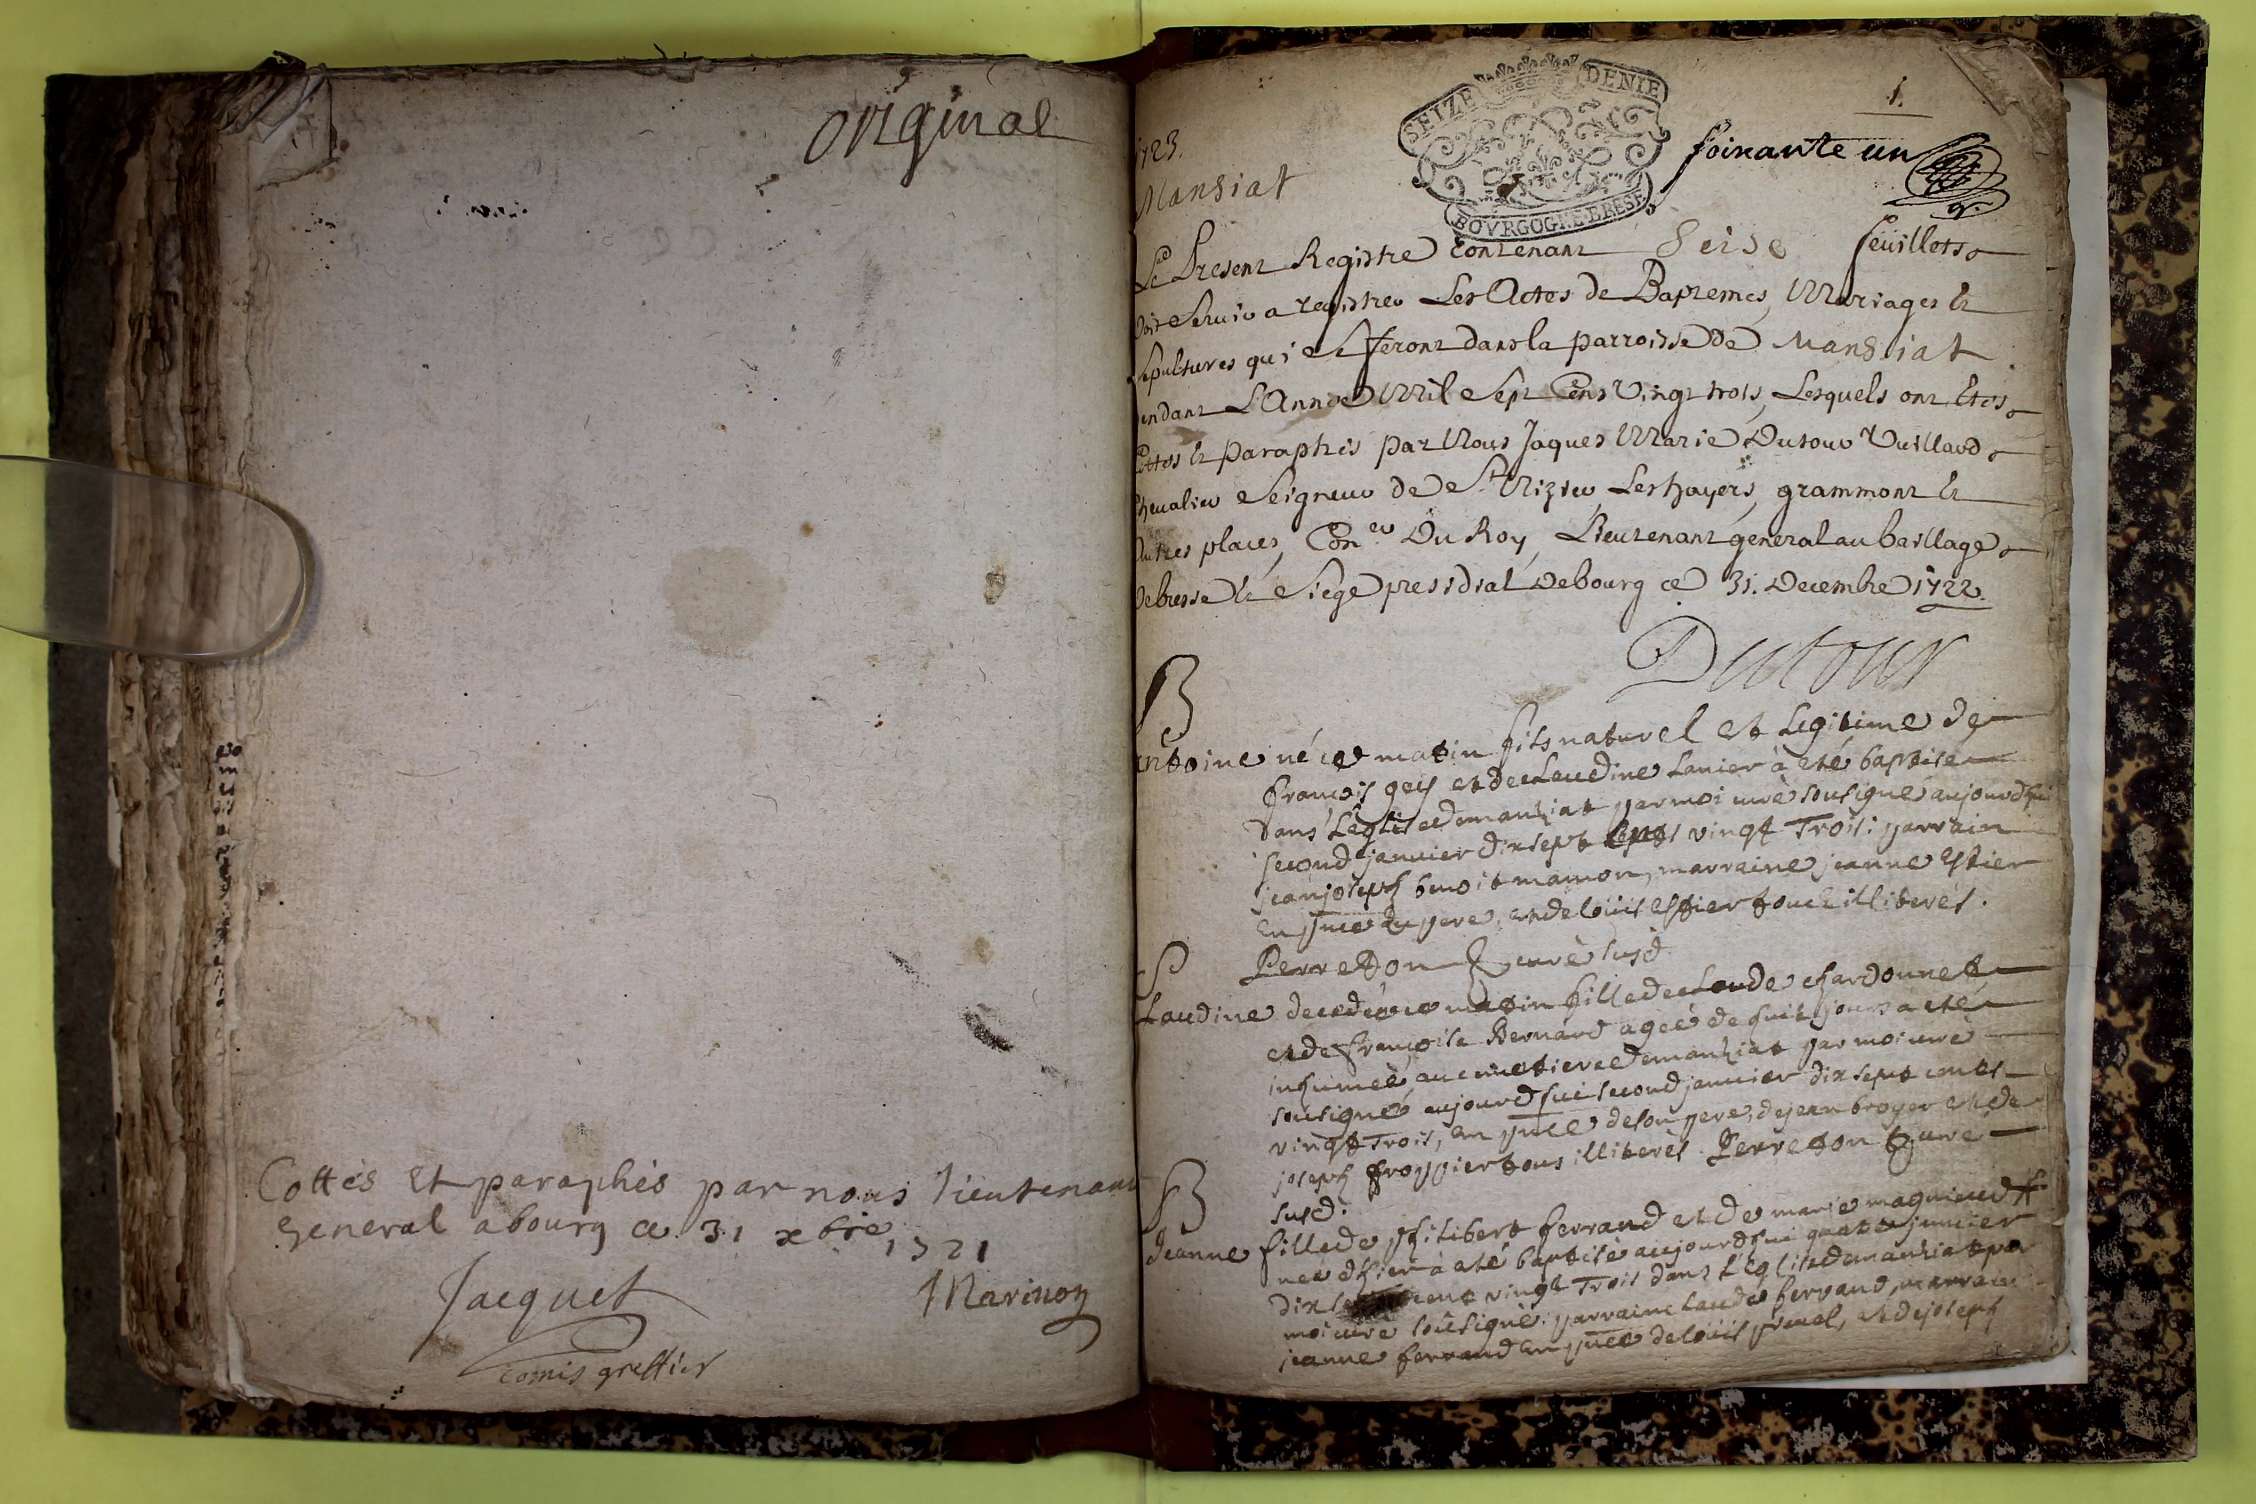 original
Cottés et paraphés par nous Lieutenant
General a bourg ce 31 xbre 1721
Jacquet
Marinon
comis greffier
1.
1723.
SEIZE DENIE
BOVRGOGNE BRESE
soixante un
Mansiat
Le Present Registre Contenant Seise feüillets
Doit Servir a registrer Les Actes de Baptemes, Mariages Et
Sepultures qui se Feront dans la parroisse De Mansiat
pendant L'Année Mil Sept Cens Vingt trois, Lesquels ont Etés
Cottes Et paraphés par Nous Jaques Marie Dutour Vuillard
Chevalier Seigneur de St Nizier Les hayers, grammont Et
Autres places, Coner Du Roy, Lieutenant general au baillage
De bresse Et Siege presidial De bourg ce 31. Decembre 1722.
Dutour
B
antoine né ce matin fils naturel et Legitime de
françois gey et de claudine Lanier à eté baptise
dans L'eglise de manziat par moi curè sousigné aujourd'hui
second janvier dix sept cents vingt Trois: parrain
jean joseph benoit mamon, marraine jeanne
en pnce du pere, et de loüis tous illiterés.
S
Perreton curè susd.
Claudine decedée ce matin fille de claude chardonnet
et de françoise Bernard ageé de huit jours à eté
inhumeé au cimetiere de manziat par moi cure
sousigné aujourd'hui second janvier dix sept cents
vingt Trois, en pnce de son pere, de jean broyer et de
joseph froppier tous illiterés. Perreton cure
susd:
B
Jeanne fille de philibert ferrand et de marie
neé d'hier à eté baptiseè aujourd'hui quatre janvier
dix sept cent vingt Trois dans L'Eglise de manziat par
moi cure sousigné. parrain claude ferrand, marraine
jeanne ferrand en pnce de loüis pruel, et de joseph